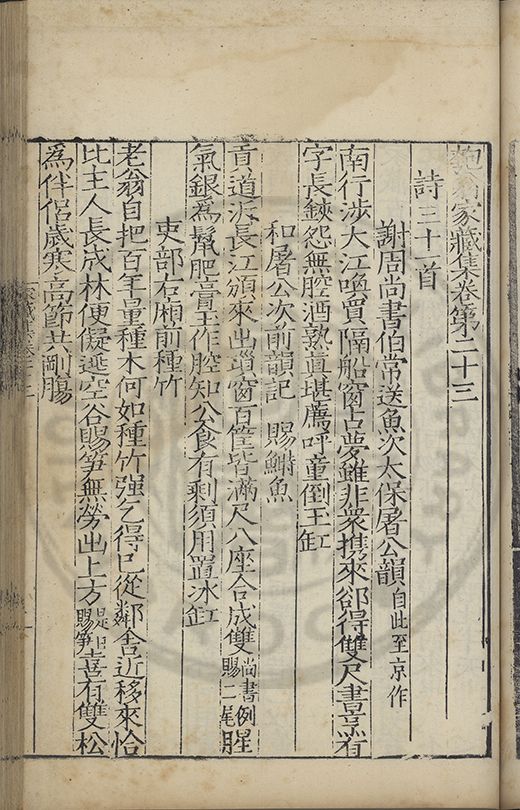 匏翁家藏集卷第二十三
詩三十一首
謝周尚書伯常送魚次太保屠公韻自此至京作
南行涉大江喚買隔船窗占夢雖非衆携來卻得雙尺書烹有
字長鋏怨無腔酒熟真堪薦呼童倒玉缸
和屠公次前韻記 賜鰣魚
貢道泝長江頒來出璅窗百筐皆滿尺八座合成雙尚書例賜二尾
氣銀為鬣肥膏玉作腔知公食有剩須用置冰缸
吏部右廂前種竹
老翁自把百年量種木何如種竹强乞得已從鄰舍近移來恰
比主人長成林便儗遊空谷賜笋無勞出上方是日賜笋喜有雙松
為伴侶歲寒高節共剛腸